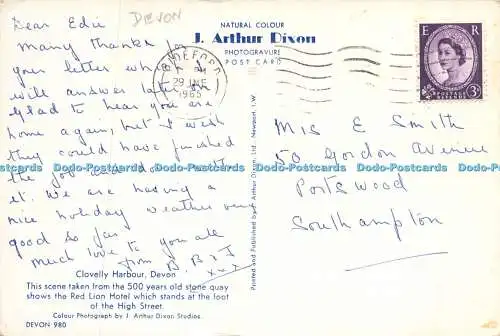 Dear Edie
DEVON
many thanks for
your letter which I
will answer later on
Glad to hear you are
home again, but I wish
they could have finished
the job & be done with
it. We are having a
nice holiday weather very
good so far
much love to you all
from B. B & J
xxx
Clovelly Harbour, Devon
This scene taken from the 500 years old stone quay
shows the Red Lion Hotel which stands at the foot
of the High Street.
Colour Photograph by J. Arthur Dixon Studios.
DEVON 980
NATURAL COLOUR
J. Arthur Dixon
PHOTOGRAVURE
POST CARD
BIDEFORD
29 JNE
1965
E R
POSTAGE REVENUE
3D
Printed and Published by J. Arthur Dixon Ltd., Newport, I.W.
Mrs E Smith
50 Gordon Avenue
Portswood
Southampton
Dodo-Postcards Dodo-Postcards Dodo-Postcards Dodo-Postcards Dodo-Postcards